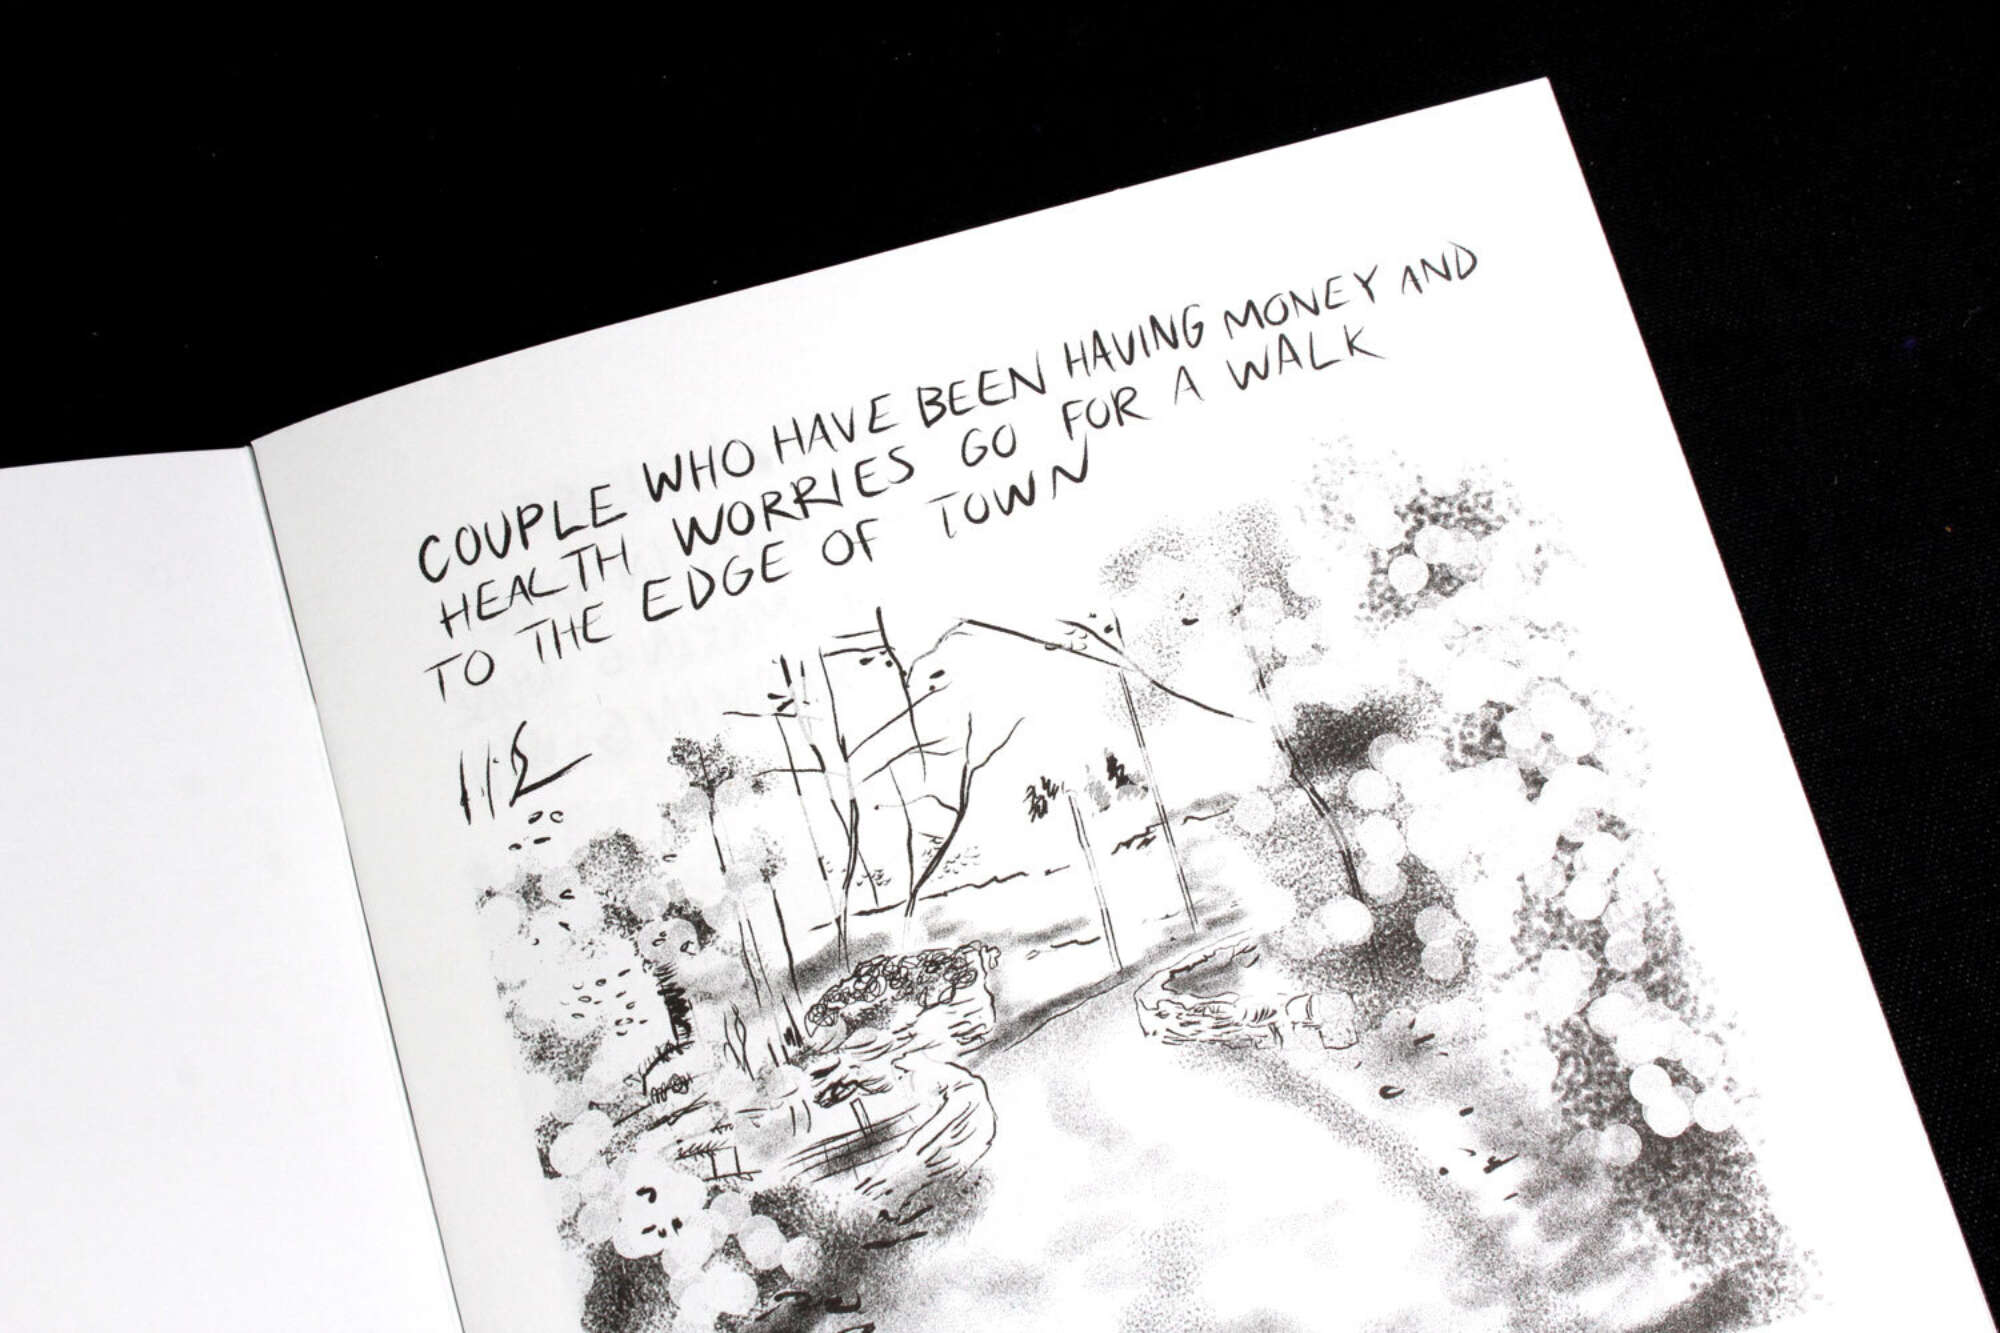 COUPLE WHO HAVE BEEN HAVING MONEY AND
HEALTH WORRIES GO FOR A WALK
TO THE EDGE OF TOWN